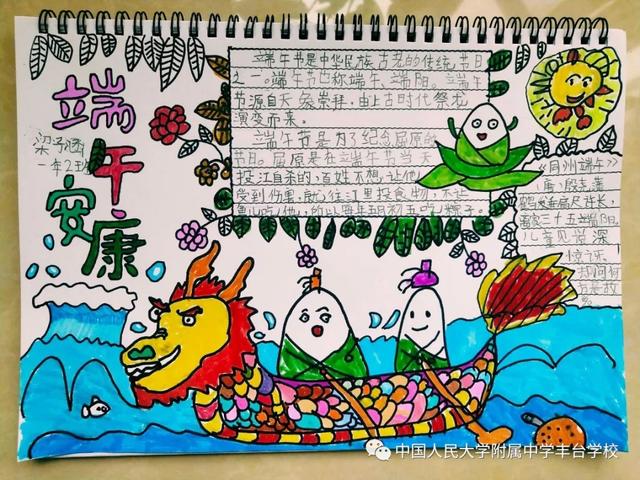 端午安康
梁子涵
一年2班
端午节是中华民族古老的传统节日
之一。端午节也称端午、端阳。端午
节源自天象崇拜，由上古时代祭龙
演变而来。
端午节是为了纪念屈原的
节日。屈原是在端午节当天
投江自杀的，百姓不想让他
受到伤害，就往江里投食物，不让
鱼儿吃他，所以每年五月初五吃粽子。
《同州端午》
唐 殷尧藩
鹤发垂肩尺许长，
离家三十五端阳。
儿童见说深
惊讶
却问何
方是故
乡
中国人民大学附属中学丰台学校